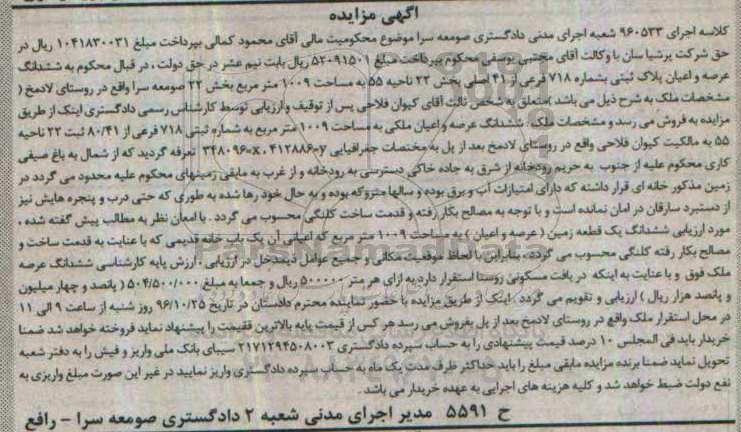 آگهی مزایده
کلاسه اجرای ۹۶۰۵۳۳ شعبه اجرای مدنی دادگستری صومعه سرا موضوع محکومیت مالی آقای محمود کمالی بپرداخت مبلغ ۱۰۴۱۸۳۰۰۳۱ ریال در
حق شرکت پرشیا سان با وکالت آقای مجتبی یوسفی محکوم بپرداخت مبلغ ۵۲۰۹۱۵۰۱ ریال بابت نیم عشر در حق دولت ، در قبال محکوم به ششدانگ
عرصه و اعیان پلاک ثبتی بشماره ۷۱۸ فرعی از ۴۱ اصلی بخش ۲۲ ناحیه ۵۵ به مساحت ۱۰۰۹ متر مربع بخش ۲۲ صومعه سرا واقع در روستای لادمخ (
مشخصات ملک به شرح ذیل می باشد )متعلق به شخص ثالث آقای کیوان فلاحی پس از توقیف و ارزیابی توسط کارشناس رسمی دادگستری اینک از طریق
مزایده به فروش می رسد و مشخصات ملک ششدانگ عرصه و اعیان ملکی به مساحت ۱۰۰۹ متر مربع به شماره ثبتی ۷۱۸ فرعی از ۸۰/۴۱ ثبت ۲۲ ناحیه
۵۵ به مالکیت کیوان فلاحی واقع در روستای لادمخ بعد از پل به مختصات جغرافیایی ۳۴۸۰۹۶=x، ۴۱۲۸۸۶=y تعرفه گردید که از شمال به باغ صیفی
کاری محکوم علیه از جنوب به حریم رودخانه از شرق به جاده خاکی دسترسی به رودخانه و از غرب به مابقی زمینهای محکوم علیه محدود می گردد در
زمین مذکور خانه ای قرار داشته که دارای امتیازات آب و برق بوده و سالها متروکه بوده و به حال خود رها شده به طوری که حتی درب و پنجره هایش نیز
از دستبرد سارقان در امان نمانده است و با توجه به مصالح بکار رفته و قدمت ساخت کلنگی محسوب می گردد . با امعان نظر به مطالب پیش گفته شده ،
مورد ارزیابی ششدانگ یک قطعه زمین ( عرصه و اعیان ) به مساحت ۱۰۰۹ متر مربع که اعیانی آن یک باب خانه قدیمی که با عنایت به قدمت ساخت و
مصالح بکار رفته کلنگی محسوب می گردد . بنابراین با لحاظ موقعیت مکانی و جمیع عوامل ذیمدخل در ارزیابی ، ارزش پایه کارشناسی ششدانگ عرصه
ملک فوق و با عنایت به اینکه در بافت مسکونی روستا استقرار دارد به ازای هر متر ۵۰۰۰۰۰ ریال و جمعا به مبلغ ۵۰۴/۵۰۰/۰۰۰ ( پانصد و چهار میلیون
و پانصد هزار ریال ) ارزیابی و تقویم می گردد . اینک از طریق مزایده با حضور نماینده محترم دادستان در تاریخ ۹۶/۱۰/۲۵ روز شنبه از ساعت ۹ الی ۱۱
در محل استقرار ملک واقع در روستای لادمخ بعد از پل بفروش می رسد هر کس از قیمت پایه بالاترین قیمت را پیشنهاد نماید فروخته خواهد شد ضمنا
خریدار باید فی المجلس ۱۰ درصد قیمت پیشنهادی را به حساب سپرده دادگستری ۲۱۷۱۲۹۴۵۰۸۰۰۳ سیبای بانک ملی واریز و فیش را به دفتر شعبه
تحویل نماید ضمنا برنده مزایده مابقی مبلغ را باید حداکثر ظرف مدت یک ماه به حساب سپرده دادگستری واریز نمایید در غیر این صورت مبلغ واریزی به
نفع دولت ضبط خواهد شد و کلیه هزینه های اجرایی به عهده خریدار می باشد .
ح ۵۵۹۱ مدیر اجرای مدنی شعبه ۲ دادگستری صومعه سرا - رافع